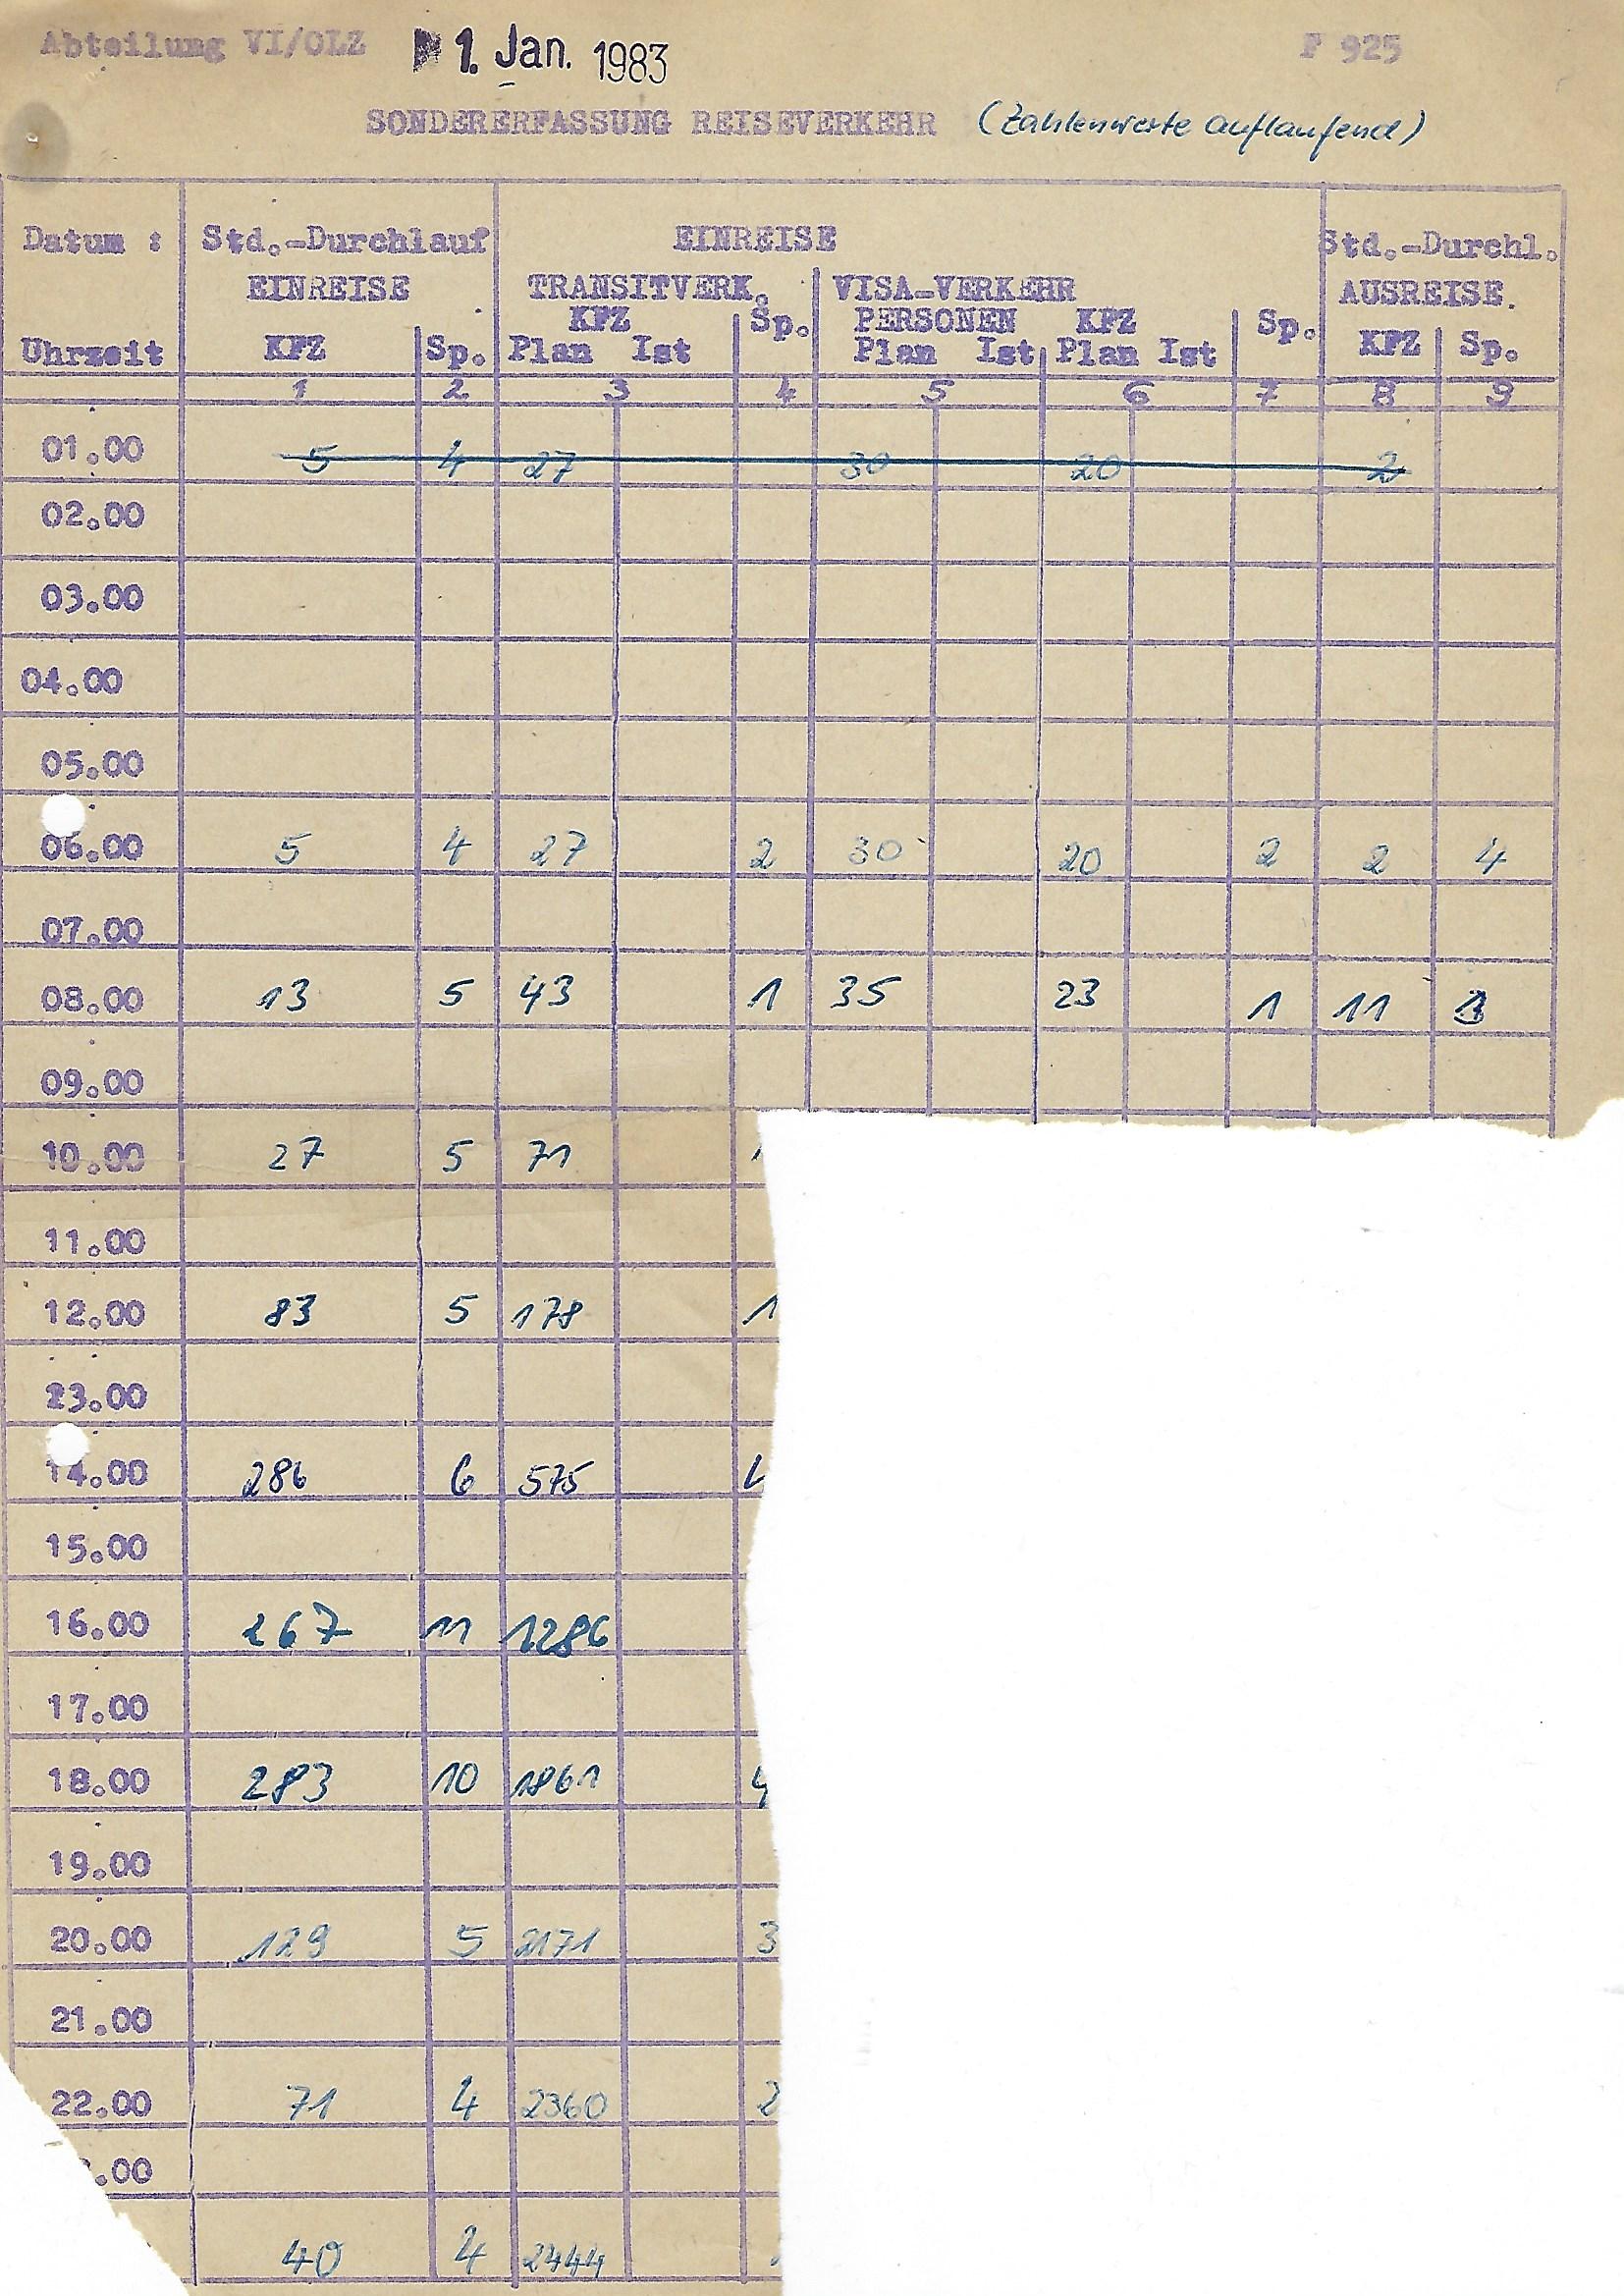 Abteilung VI/OLZ 1. Jan. 1983 F 925
SONDERERFASSUNG REISEVERKEHR (Zahlenwerte auflaufend)
Datum : Std.-Durchlauf EINREISE Std.-Durchl.
EINREISE TRANSITVERK. VISA-VERKEHR AUSREISE.
KFZ Sp. PERSONEN KFZ Sp.
Uhrzeit KFZ Sp. Plan Ist Plan Ist Plan Ist KFZ Sp.
1 2 3 4 5 6 7 8 9
01.00 5 4 27 30 20 2
02.00
03.00
04.00
05.00
06.00 5 4 27 2 30 20 2 2 4
07.00
08.00 13 5 43 1 35 23 1 11
09.00
10.00 27 5 71
11.00
12.00 83 5 178 1
23.00
14.00 286 6 575
15.00
16.00 267 11 1286
17.00
18.00 283 10 1861 4
19.00
20.00 129 5 2171 3
21.00
22.00 71 4 2360 2
.00
40 4 2444